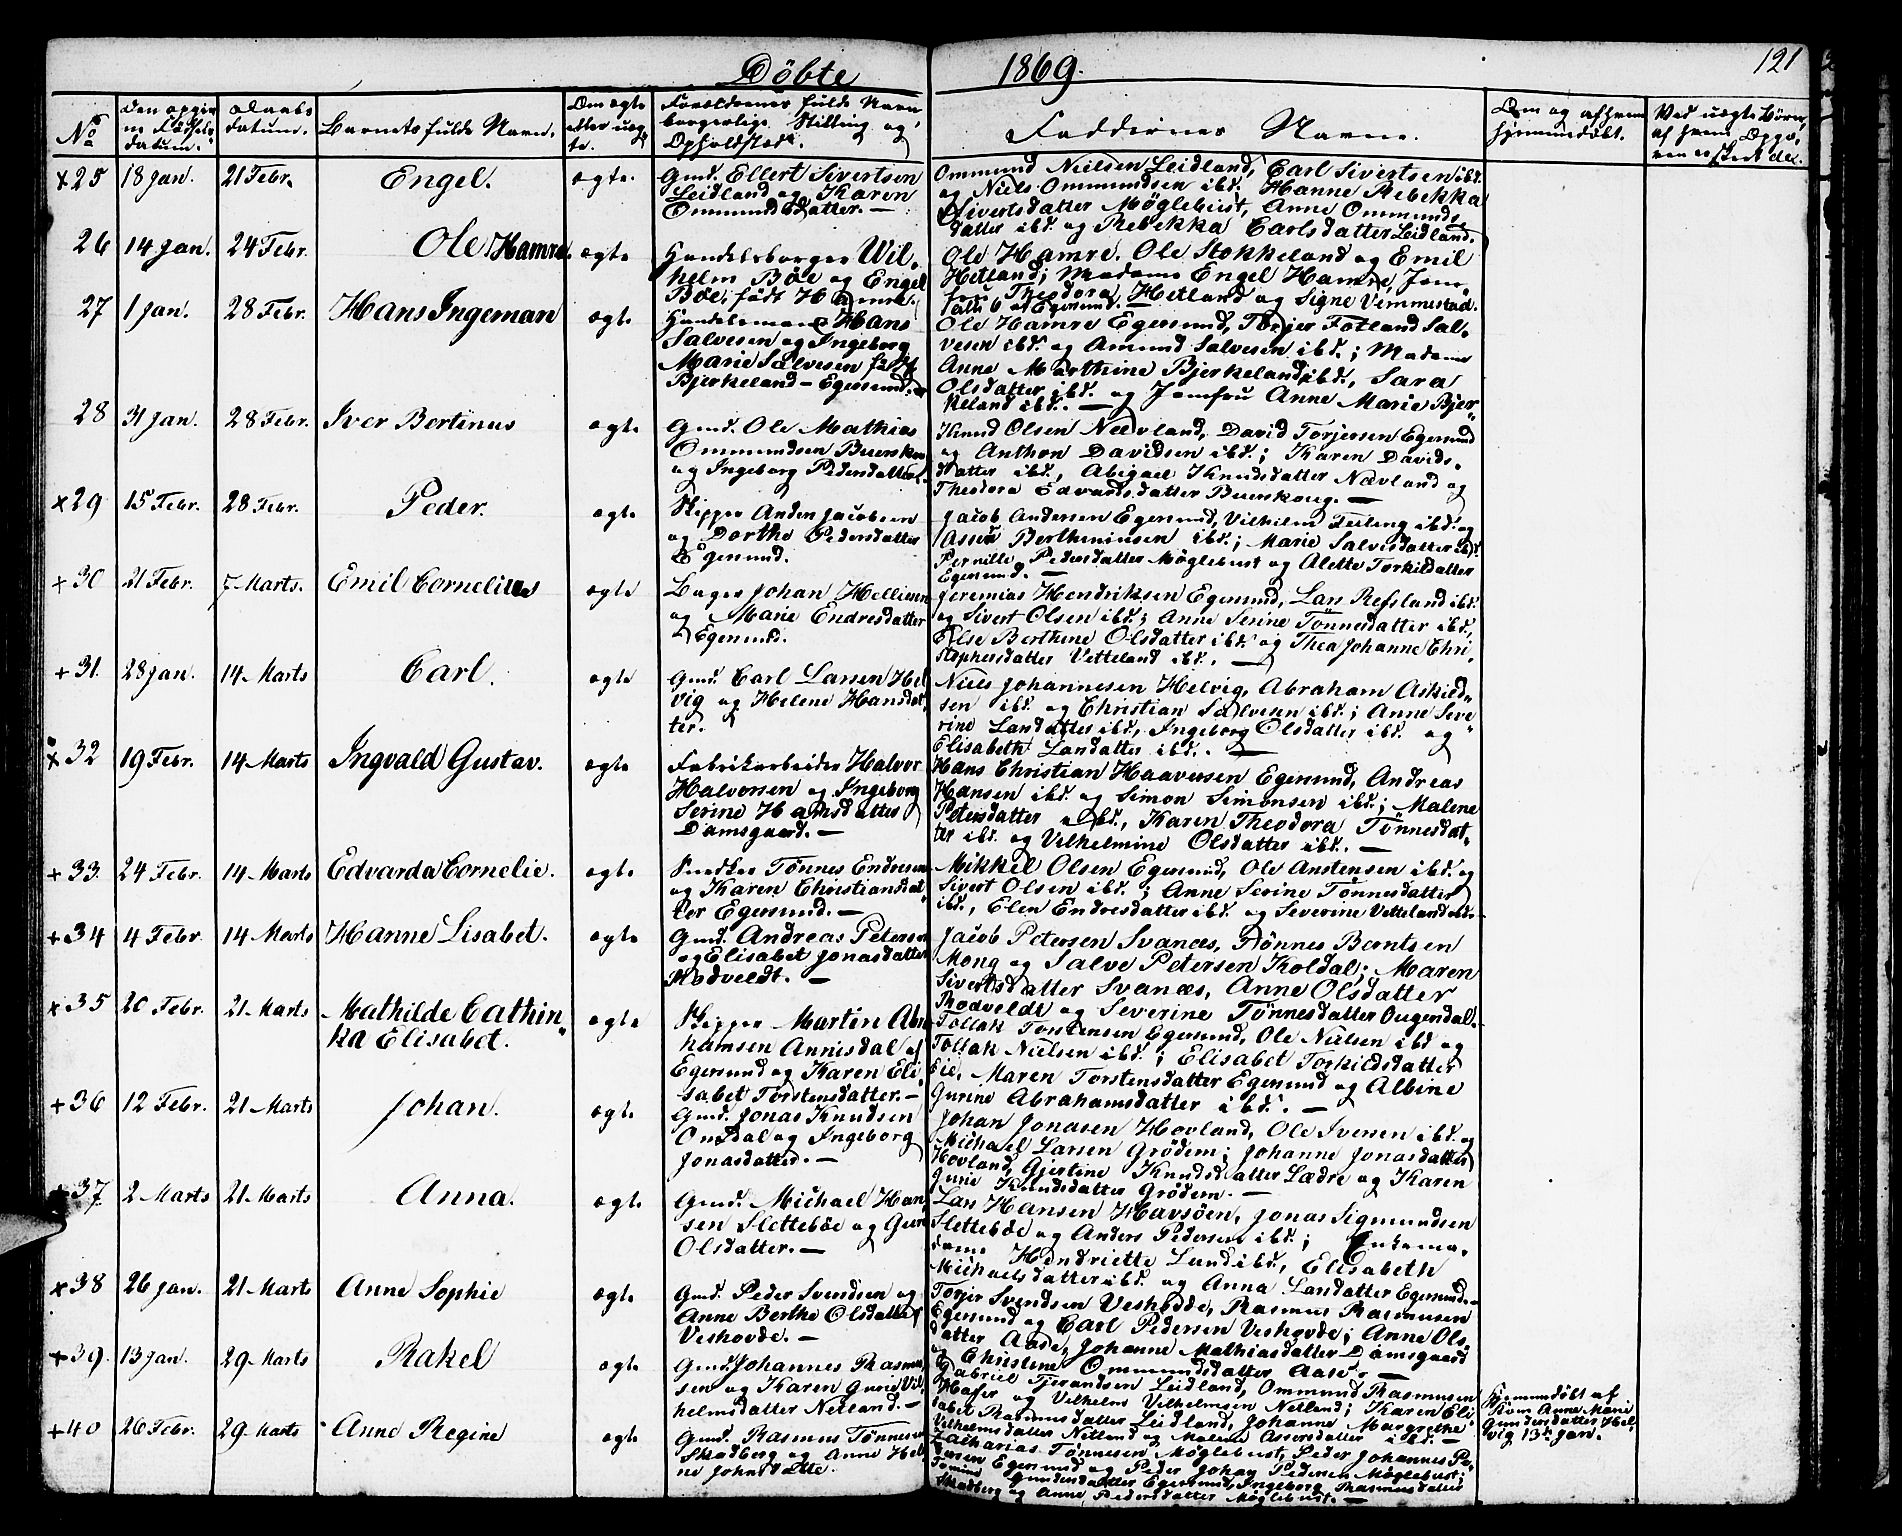 Döbte 1869. 121
No
Den opgivne Fødselsdatum.
Daabsdatum.
Barnets fulde Navn.
Om ægte eller uægte.
Forældrenes fulde Navn, borgerlige Stilling og Opholdssted.
Faddernes Navne.
Om og af hvem hjemmedøbt.
Ved uægte Børn,
×25 18 Jan. 21 Febr. Engel. ægte.
Gmd. Ellert Sivertsen
Leidland og Karen
Ommundsdatter. —
Ommund Nielsen Leidland, Carl Sivertsen ibd.
og Niels Ommundsen ibd. Hanne Rebekka
Sivertsdatter Möglebust, Anne Ommunds
datter ibd. og Rebekka Carlsdatter Leidland.
26 14 Jan. 24 Febr. Ole Hamre. ægte
Handelsborger Wil-
helm Böe og Engel
Böe, født Hamre.
Ole Hamre, Ole Stokkeland og Emil
Hetland; Madame Engel Hamre, Jom-
fru Theodora Hetland og Signe Vemmestad.
alle 6 af Egersund. —
27 1 Jan. 28 Febr. Hans Ingeman ægte
Handelsmand Hans
Salvesen og Ingeborg
Marie Salvesen født
Bjerkeland - Egersund.
Ole Hamre Egersund, Torjer Fotland Sal-
vesen ibd. og Amund Salvesen ibd.; Madame
Anne Marthine Bjerkeland ibd., Sara
Olsdatter ibd. og Jomfru Anne Marie Bjer-
keland ibd. —
28 31 Jan. 28 Febr. Iver Bertinus ægte
Gmd. Ole Mathias
Ommundsen Buerskoug
og Ingeborg Pedersdatter.
Knud Olsen Nædvland, David Torjersen Egersund
og Anthon Davidsen ibd.; Karen Davids-
datter ibd., Abigael Knudsdatter Nævland og
Theodora Edvardsdatter Buerskoug. —
×29 15 Febr. 28 Febr. Peder. ægte
Skipper Anders Jacobsen
og Dorthe Pedersdatter
Egersund.
Jacob Andersen Egersund, Vilhelm Feiling ibd. og
Asser Berthiniusen ibd.; Marie Salvesdatter ibd.
Pernille Pedersdatter Möglebust og Alette Torkildsdatter
Egersund. —
+30 21 Febr. 7 Marts. Emil Cornelius ægte
Bager Johan Helliesen
og Marie Endresdatter
Egersund.
Jeremias Hendriksen Egersund, Lars Refsland ibd.
og Sivert Olsen ibd.; Anne Serine Tönnesdatter ibd.,
Else Berthine Olsdatter ibd. og Thea Johanne Chri-
stophersdatter Vetteland ibd. —
+31. 28 Jan. 14 Marts Carl. ægte
Gmd. Carl Larsen Hel
vig og Helene Hansdat-
ter.
Niels Johannesen Helvig, Abraham Askild-
sen ibd. og Christian Salvesen ibd.; Anne Seve-
rine Larsdatter ibd., Ingeborg Olsdatter ibd. og
Elisabeth Larsdatter ibd. —
×32 19 Febr. 14 Marts Ingvald Gustav. ægte
Fabrikarbeider Halvor
Halvorsen og Ingeborg
Serine Hansdatter
Damsgaard. —
Hans Christian Haaversen Egersund, Andreas
Hansen ibd. og Simon Simonsen ibd.; Malene
Petersdatter ibd., Karen Theodora Tönnesdat-
ter ibd. og Vilhelmine Olsdatter ibd. —
+33 24 Febr. 14 Marts Edvarda Cornelie. ægte
Snedker Tönnes Endresen
og Karen Christiansdat-
ter Egersund. —
Mikkel Olsen Egersund, Ole Anstensen ibd. og
Sivert Olsen ibd.; Anne Serine Tönnesdatter
ibd., Elen Endresdatter ibd. og Severine Vetteland ibd.
+34 4 Febr. 14 Marts Hanne Lisabet. ægte
Gmd. Andreas Petersen
og Elisabet Jonasdatter
Rodveldt. —
Jacob Petersen Svanæs, Tönnes Berntsen
Mong og Salve Petersen Koldal; Maren
Sivertsdatter Svanæs, Anne Olsdatter
Rodveldt og Severine Tönnesdatter Ougendal.
×35 20 Febr. 21 Marts Mathilde Cathin-
ka Elisabet. ægte
Skipper Martin Abra
hamsen Annisdal af
Egersund og Karen Eli-
sabet Torstensdatter. —
Tollak Torstensen Egersund, Ole Nielsen ibd og
Tollak Nielsen ibd.; Elisabet Torkildsdatter
Eie, Maren Torstensdatter Egersund og Albine
Gurine Abrahamsdatter ibd. —
+36 12 Febr. 21 Marts Johan. ægte
Gmd. Jonas Knudsen
Onsdal og Ingeborg
Jonasdatter. —
Johan Jonasen Hovland, Ole Iversen ibd. og
Michael Larsen Grödem; Johanne Jonasdatter
Hovland, Gjertine Knudsdatter Lædre og Karen
Gurie Knudsdatter Grödem. —
+37 2 Marts 21 Marts Anna. ægte
Gmd. Michael Han
sen Sletteböe og Guri
Olsdatter. —
Lars Hansen Havsöen, Jonas Sigmundsen
Slettebøe og Anders Pedersen ibd.; Enkema-
dame Hendriette Lund ibd., Elisabeth
Michaelsdatter ibd. og Anna Larsdatter Egersund. —
×38 26 Jan. 21 Marts Anne Sophie ægte
Gmd. Peder Svendsen og
Anne Berthe Olsdatter
Veshovde. —
Torjer Svendsen Veshovde, Rasmus Rasmussen
Egersund og Carl Pedersen Veshovde; Anne Ols-
datter Aase, Johanne Mathiasdatter Damsgaard
og Christine Ommundsdatter Aase. —
+39. 13 Jan. 29 Marts Rakel ægte
Gmd. Johannes Rasmus
sen og Karen Gurie Vil-
helmsdatter Netland. —
Gabriel Tjerandsen Leidland, Ommund Rasmussen
og Vilhelm Vilhelmsen Netland; Karen Eli-
sabet Rasmusdatter Leidland, Johanne Margrethe
Vilhelmsdatter Netland og Malene Assersdatter ibd. —
Hjemmedøbt af
Anne Marie
Gundersdatter Hel-
vig 13de Jan.
+40 26 Febr. 29 Marts Anne Regine ægte
Gmd. Rasmus Tönnesen
Skadberg og Anne Hel-
ne Johnsdatter.
Zacharias Tönnesen Möglebust, Peder Johannes Pe-
dersen Egersund og Peder Johan Pedersen Möglebust;
Gundersdatter Egersund, Ingeborg Rasmusdatter
Skadberg og Anne Pedersdatter Möglebust. —